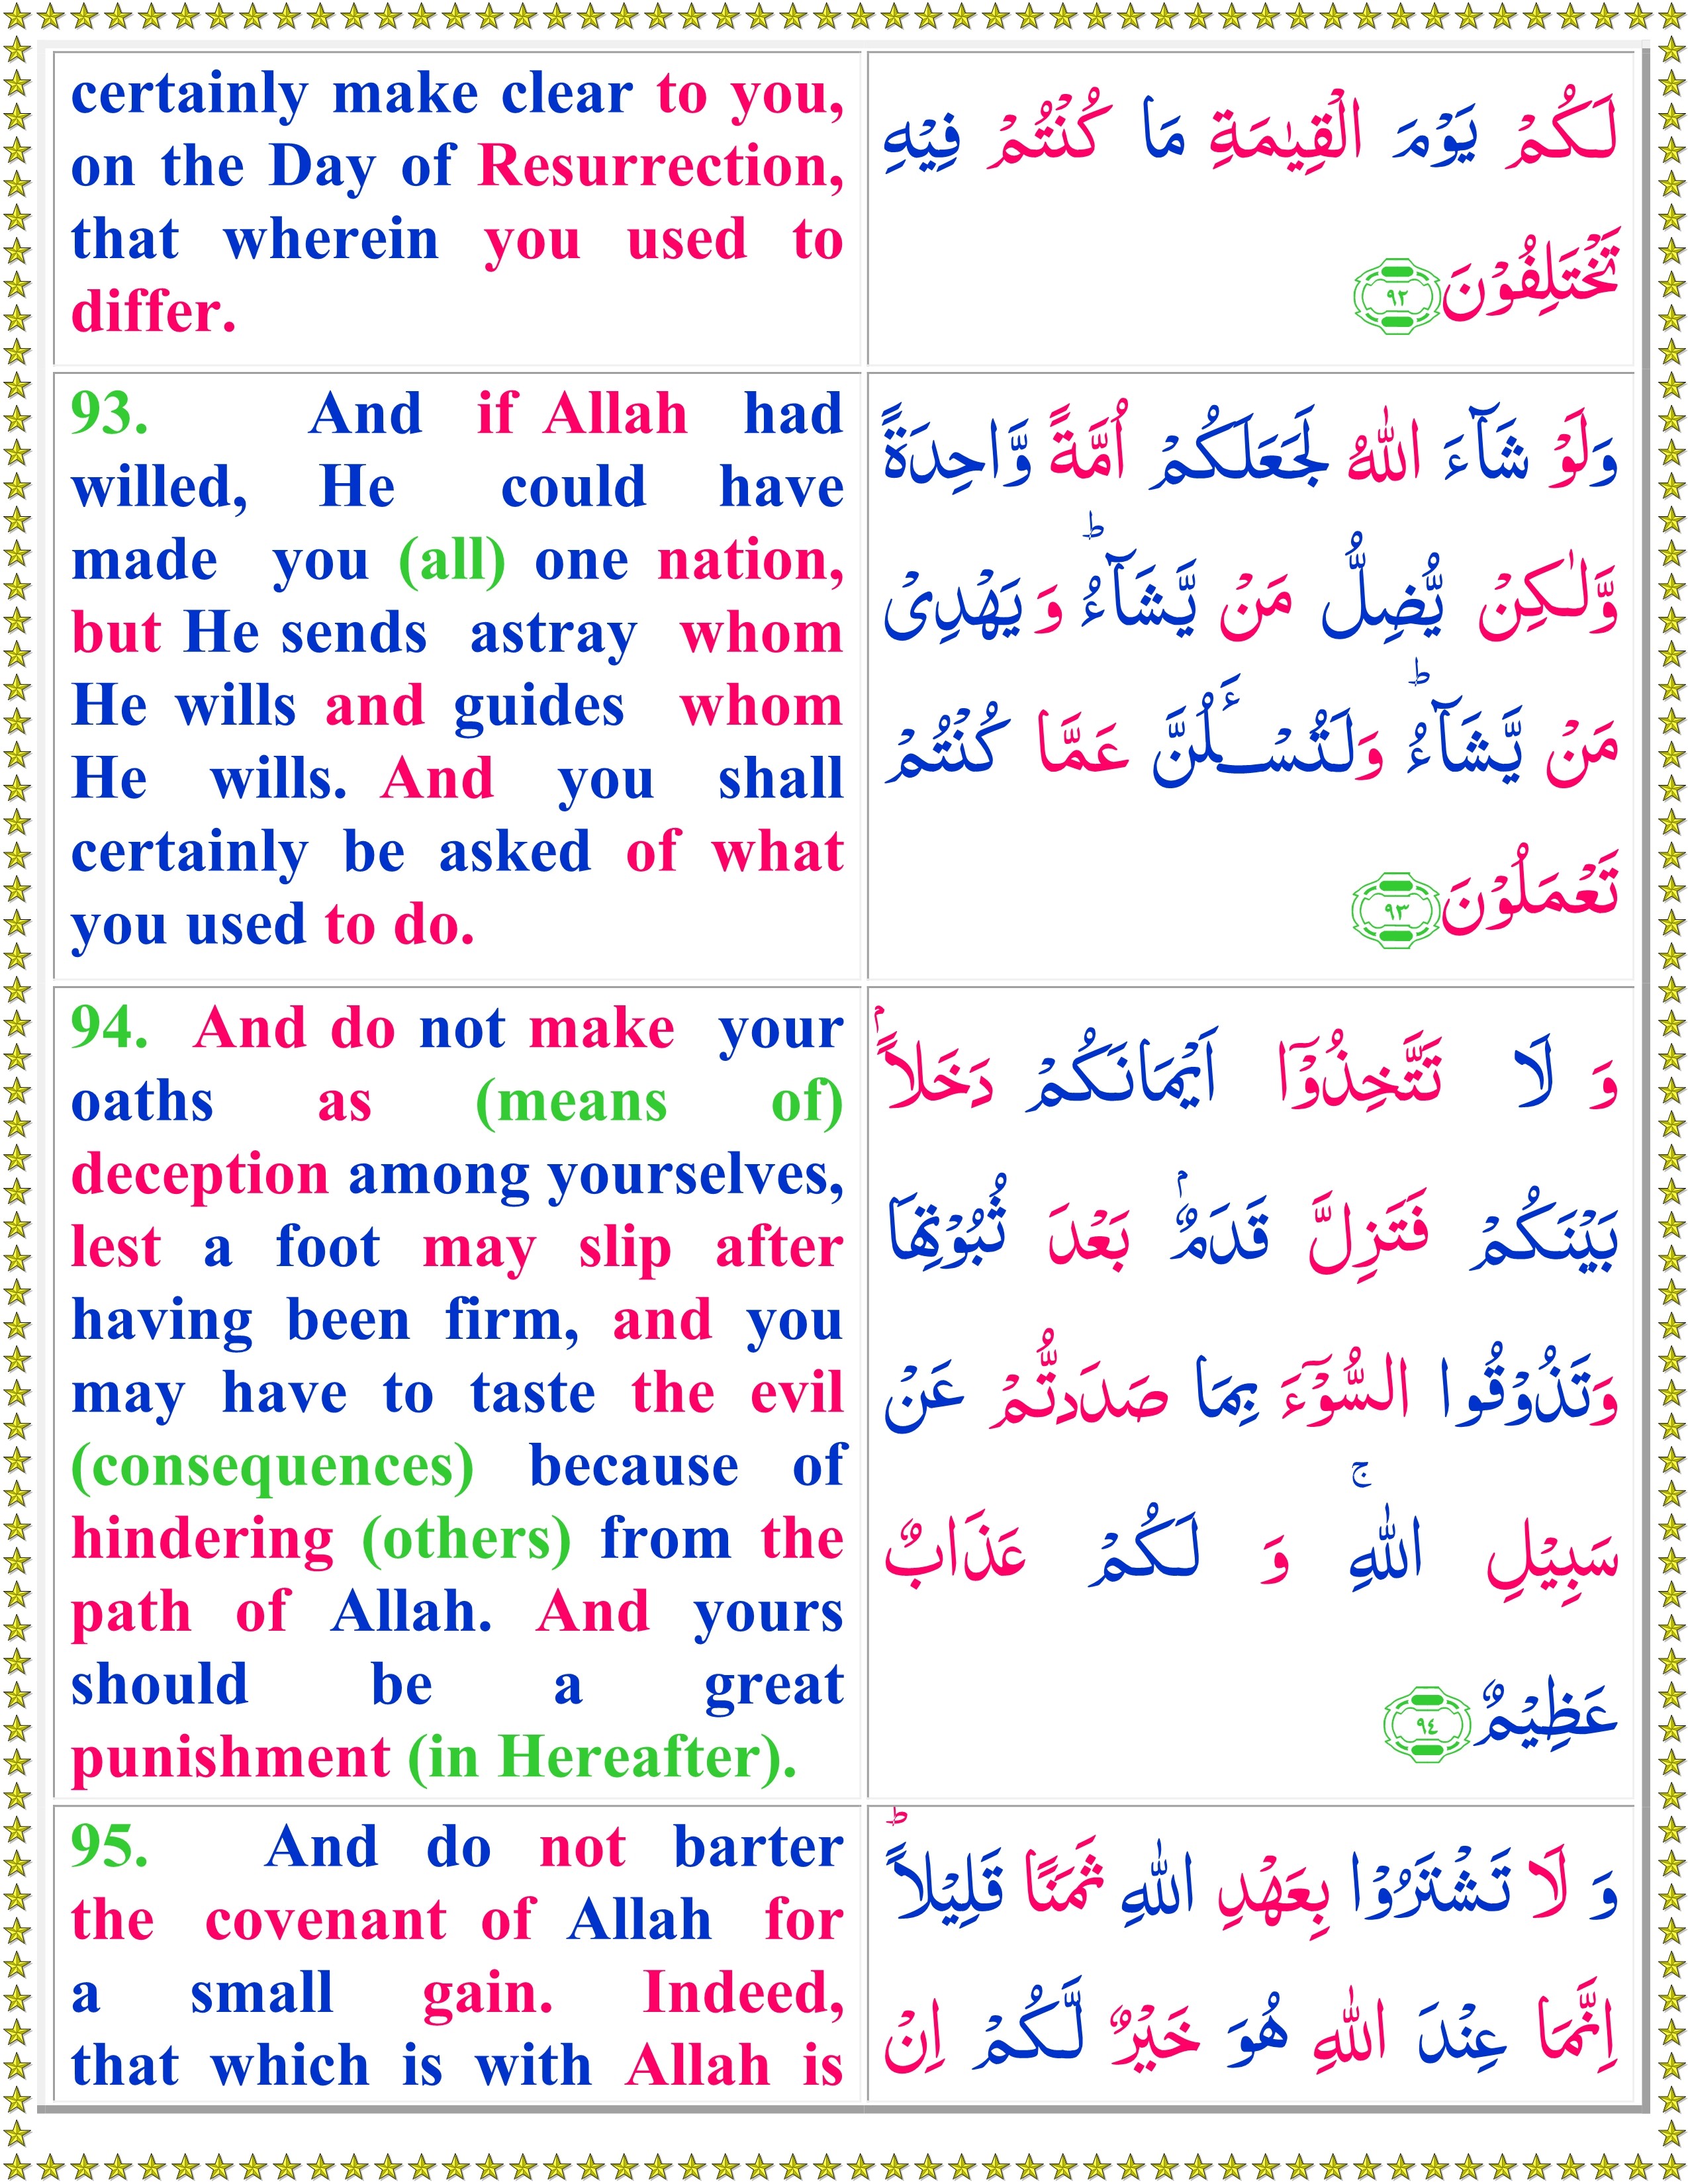 certainly make clear to you,
on the Day of Resurrection,
that wherein you used to
differ.
لَكُمْ يَوْمَ الْقِيٰمَةِ مَا كُنْتُمْ فِيْهِ
تَخْتَلِفُوْنَ ٩٢
93. And if Allah had
willed, He could have
made you (all) one nation,
but He sends astray whom
He wills and guides whom
He wills. And you shall
certainly be asked of what
you used to do.
وَلَوْ شَآءَ اللّٰهُ لَجَعَلَكُمْ اُمَّةً وَّاحِدَةً
وَّلٰكِنْ يُّضِلُّ مَنْ يَّشَآءُ ؕ وَ يَهْدِىْ
مَنْ يَّشَآءُ ؕ وَلَتُسْـَٔلُنَّ عَمَّا كُنْتُمْ
تَعْمَلُوْنَ ٩٣
94. And do not make your
oaths as (means of)
deception among yourselves,
lest a foot may slip after
having been firm, and you
may have to taste the evil
(consequences) because of
hindering (others) from the
path of Allah. And yours
should be a great
punishment (in Hereafter).
وَ لَا تَتَّخِذُوْۤا اَيْمَانَكُمْ دَخَلاًۢ
بَيْنَكُمْ فَتَزِلَّ قَدَمٌۢ بَعْدَ ثُبُوْتِهَا
وَتَذُوْقُوا السُّوْۤءَ بِمَا صَدَدتُّمْ عَنْ
سَبِيْلِ اللّٰهِ ۚ وَ لَكُمْ عَذَابٌ
عَظِيْمٌ ٩٤
95. And do not barter
the covenant of Allah for
a small gain. Indeed,
that which is with Allah is
وَ لَا تَشْتَرُوْا بِعَهْدِ اللّٰهِ ثَمَنًا قَلِيْلاً ؕ
اِنَّمَا عِنْدَ اللّٰهِ هُوَ خَيْرٌ لَّكُمْ اِنْ